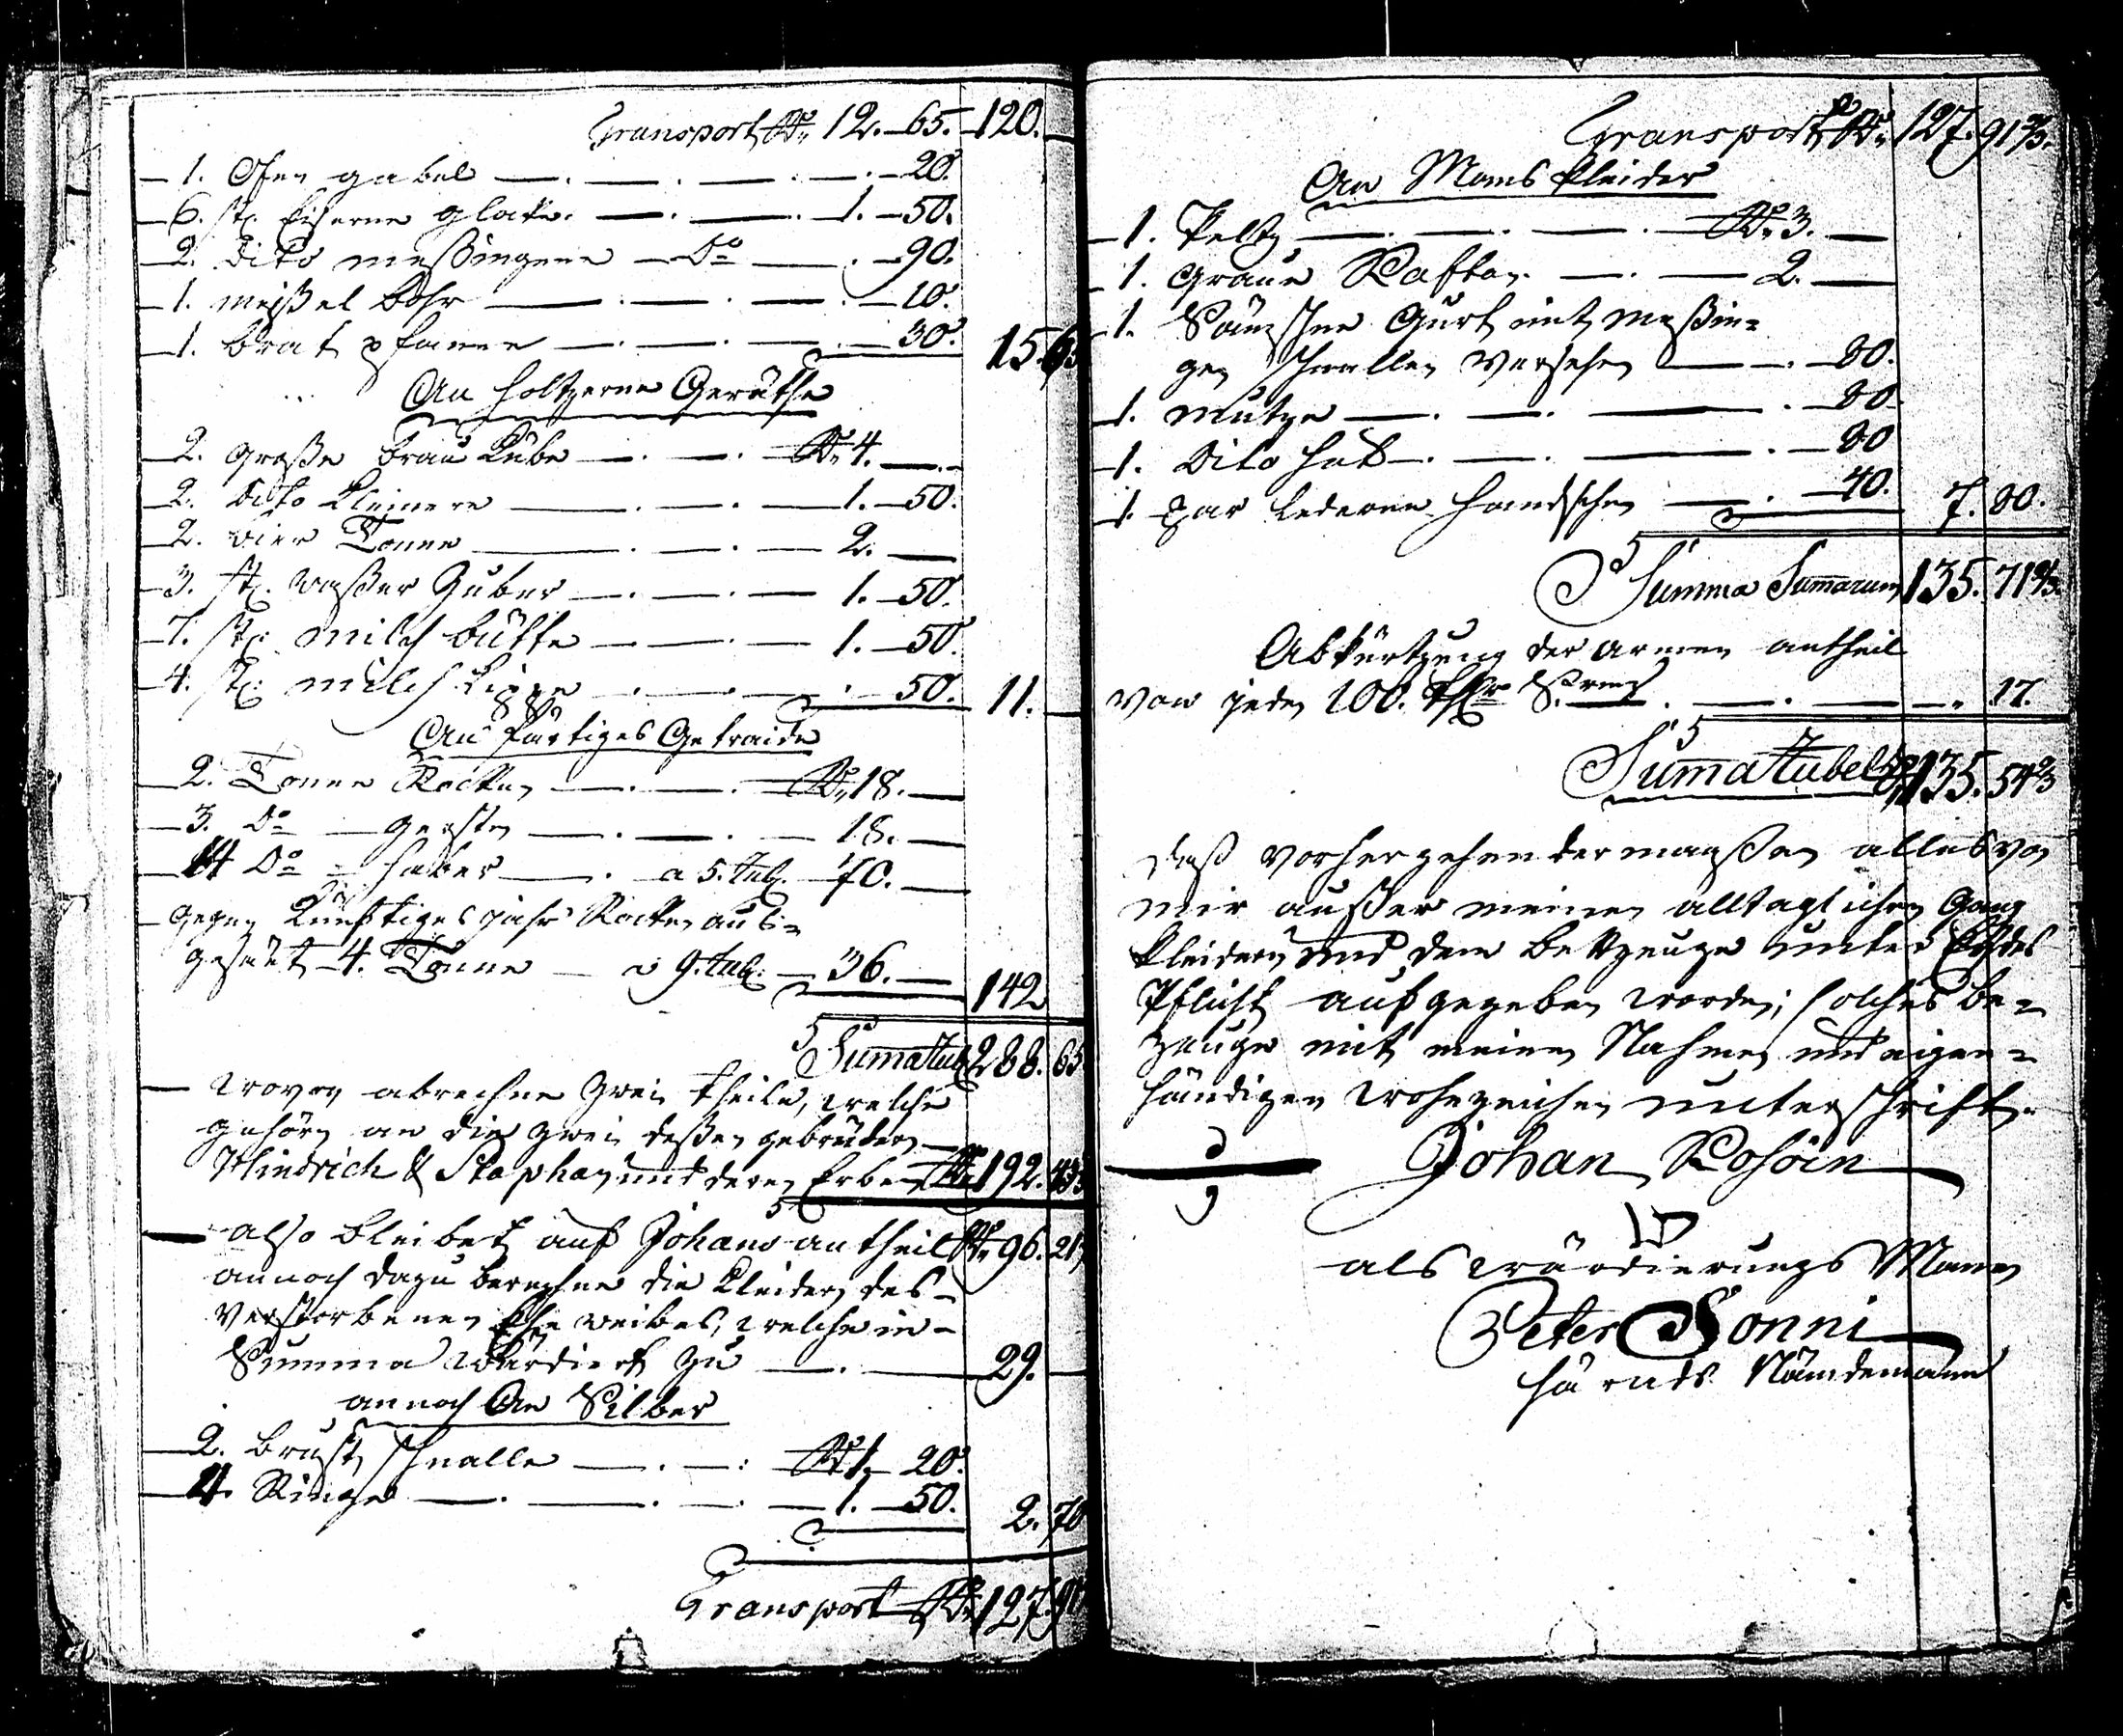 Transport Rl. 12.-65.-120.-
-1. Ofen gabel -.-.-.-20.
-6. st. Eiserne Glater. -.-. 1.-50.
-2. Dito meßingene -Do -.-90.
-1. meißel bohr -.-.-10.
-1. brat pfanne -.-.-30. 15.65
An holtzerne Geräthe
-2. Große brau Kübe -.-. Rl. 4.-
-2. Dito Kleinere -.-. 1.-50.
-2. bier Tonne -.-.-2.-
-3. st. waßer Zuber -.-.-1.-50.
-7. st. milch bütte -.-.-1.-50.
-4. st. milch Lippe -.-.-50. 11.-
An färtiges Getraide
-2. Tonne Rocken -.-. Rl. 18.-
-3. Do - Gersten -.-.-18.-
-14 Do - haber -.-a 5. Rub. 70.-
-gegen Künftiges jahr Rocken aus=
gesäet 4. Tonne - a 9. Rub. -36.- 142
Suma Rub. 288.65
- wovon abrechne zwei theile, welche
gehörn an die zwei deßen gebrüdern -
Hindrich & Staphan und deren Erben Rl. 192.43⅓
- also bleibet auf Johans antheil Rl. 96.21⅔
annoch dazu berechne die Kleider des-
verstorbenen Ehe weibes, welche in-
Summa wärdiert zu -.-29.-
annoch An Silber
-2. brust schnalle -.-. Rl. 1.-20.
-4. Ringe -.-.-1.-50. 2.70
Transport Rl. 127.91
Transport Rl. 127.91⅔.
An Mans Kleider
-1. Peltz -.-.-. Rl. 3.-
-1. Graue Kaftan -.-2.-
-1. Gurt mit meßin=
gen schnallen versehen -.-80.
-1. mütze -.-.-.-80.
-1. Dito hut -.-.-.-80
-1. Par lederne handschen -.-40. 7.80.
Summa Sumarum 135.71⅔.
Abkürtzung der armen antheil
von jeden 100. .-.-.-17.
Suma Rubel 135.54⅔
Daß vorhergehendermaaßen alles von
mir außer meinen alltaglichen Gang
Kleidern und dem Bettzeuge unter Eydes
Pflicht aufgegeben worden; solches be=
zeuge mit meinen Nahmen und eigen=
händigen unterschrift.
Johan Rosöin
als wärdierungs Mann
Peter Sonni
härads Nämdemann